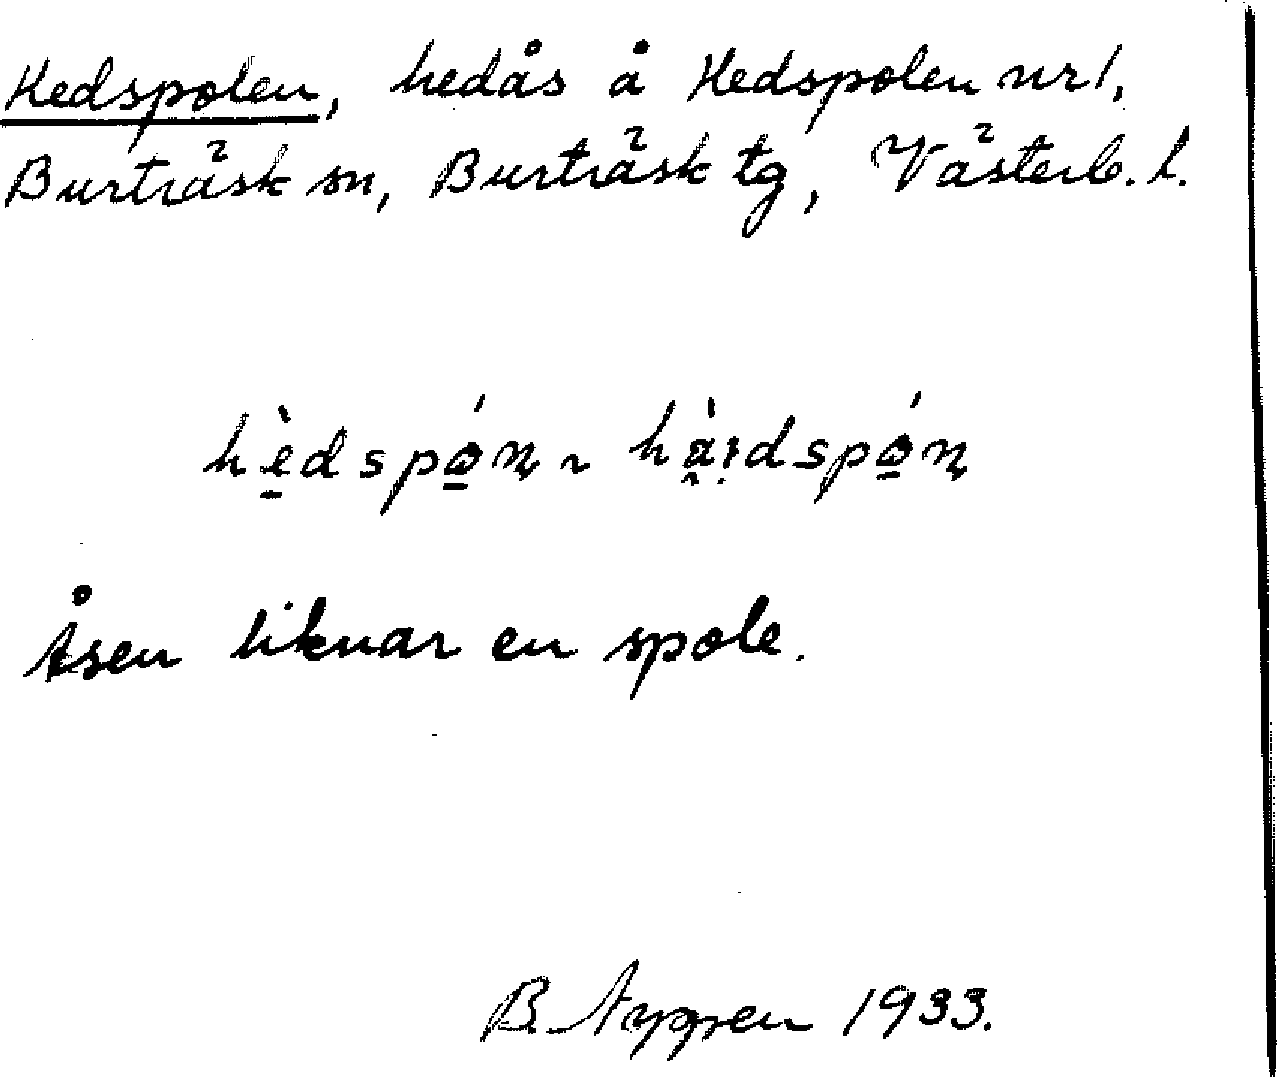 Hedspolen, hedås å Hedspolen nr 1,
Burträsk sn, Burträsk tg, Västerb. l.
hè̱dspó̱ṇ ~ hà̭ı̣dspó̱ṇ
Åsen liknar en spole.
B. 1933.